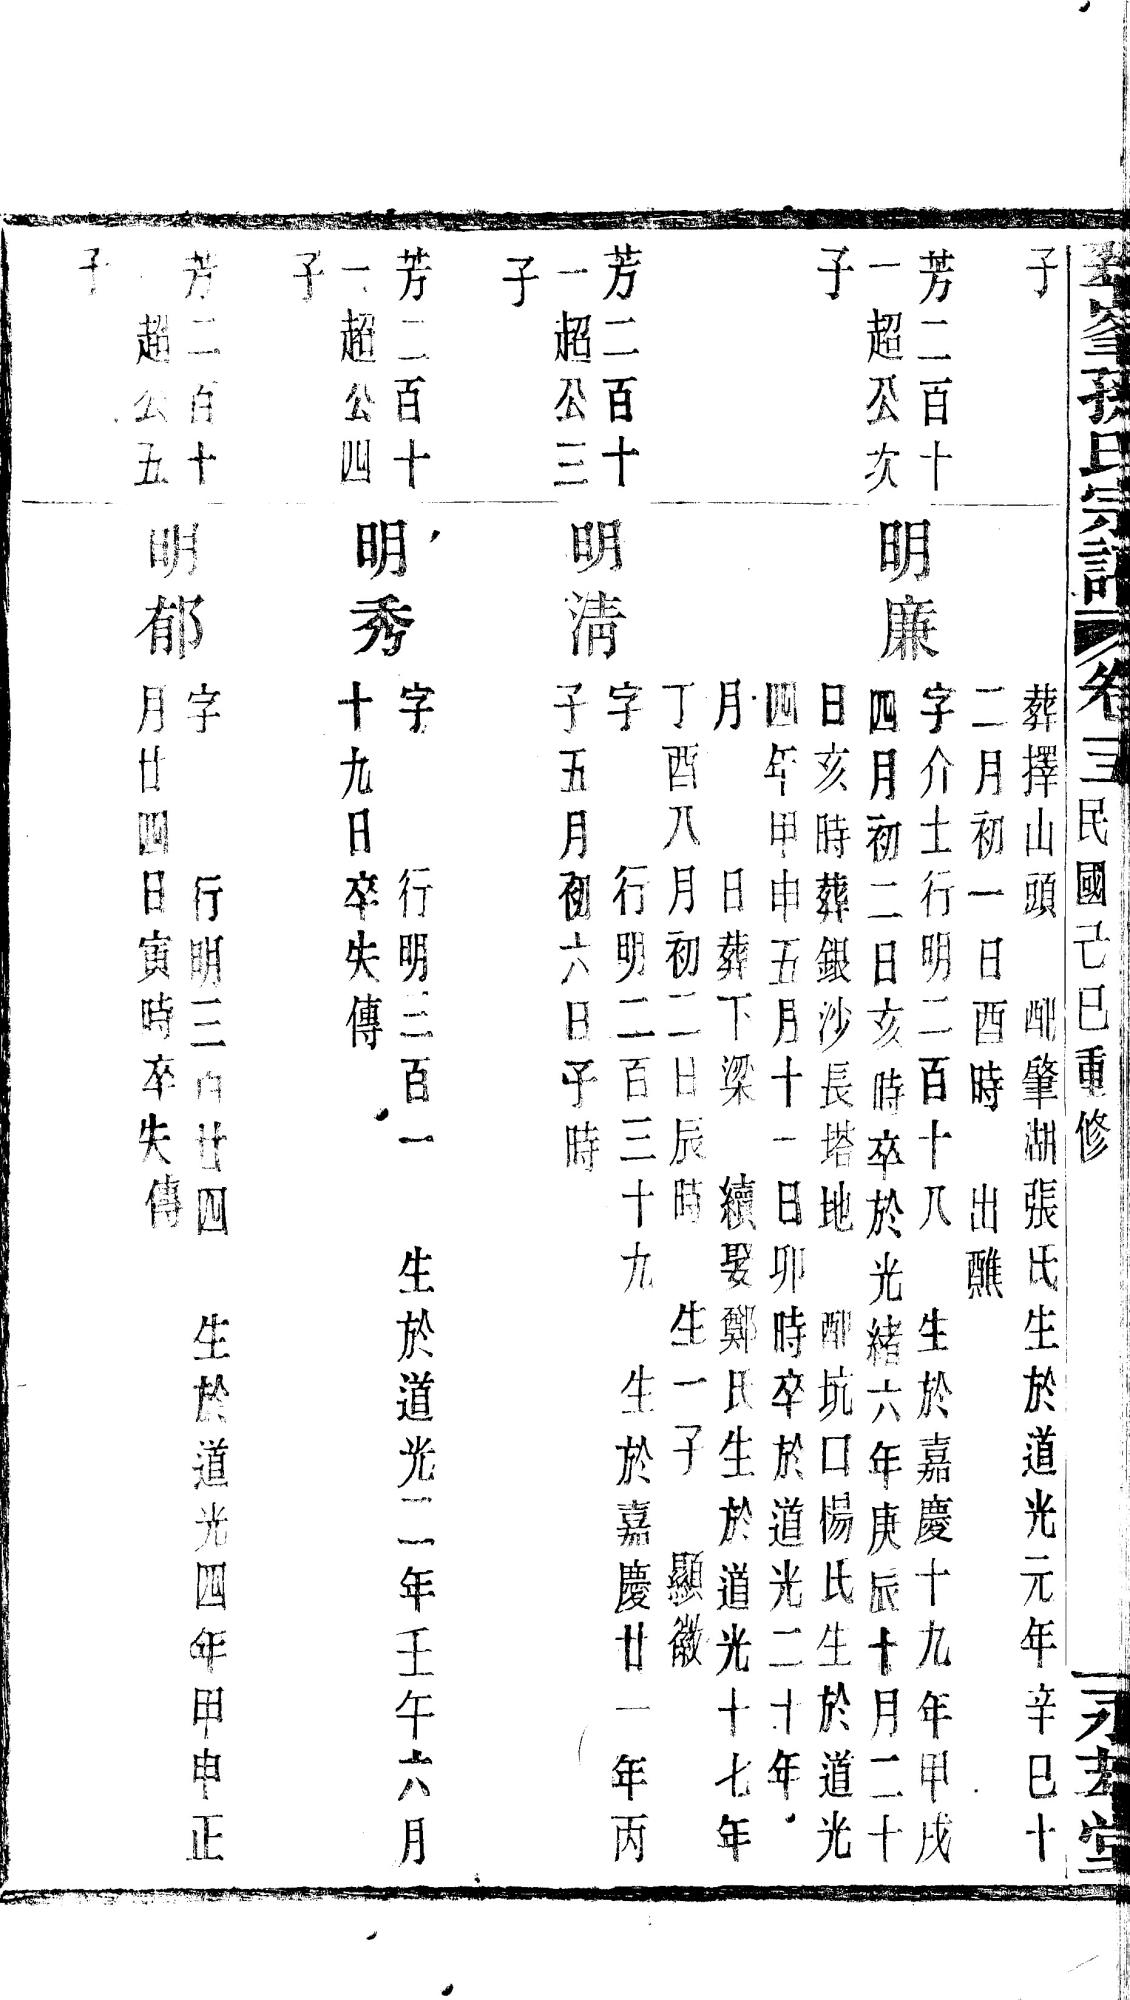 峯孫氏宗譜 卷三 民國己巳重修 永 堂
子
葬擇山頭 配肇湖張氏生於道光元年辛巳十
二月初一日酉時 出醮
芳二百十
一超公次
子
明廉
字介士行明二百十八 生於嘉慶十九年甲戌
四月初二日亥時卒於光緒六年庚辰十月二十
日亥時葬銀沙長塔地 配坑口楊氏生於道光
四年甲申五月十一日卯時卒於道光二十年
月 日葬下梁 續娶鄭氏生於道光十七年
丁酉八月初二日辰時 生一子 顯徽
芳二百十
一超公三
子
明清
字 行明二百三十九 生於嘉慶廿一年丙
子五月初六日子時
芳二百十
一超公四
子
明秀
字 行明三百一 生於道光二年壬午六月
十九日卒失傳
芳二百十
一超公五
子
明郁
字 行明三百廿四 生於道光四年甲申正
月廿四日寅時卒失傳